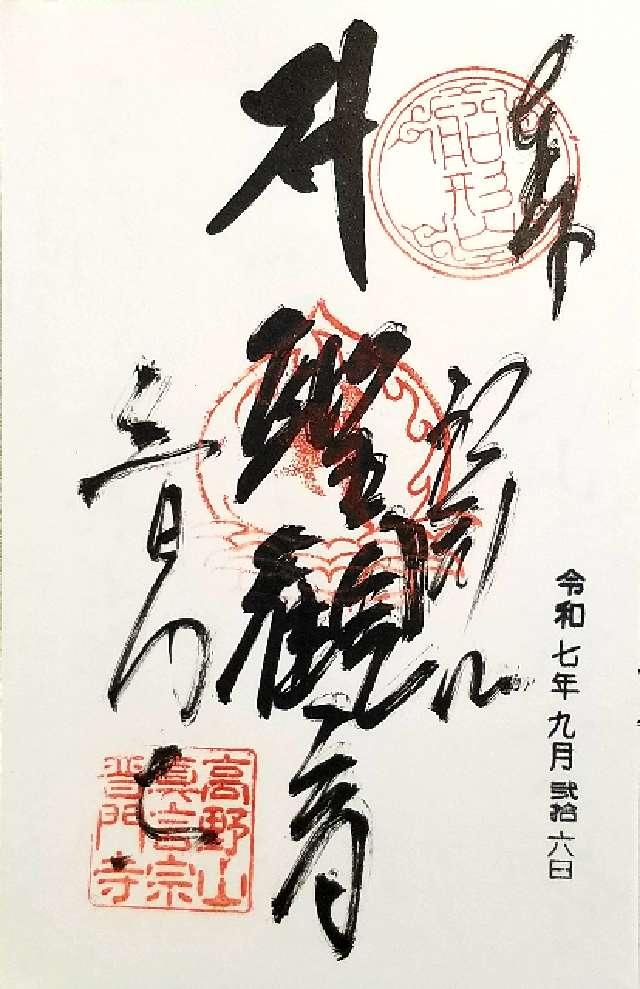 奉拝
船形山
令和七年九月弐拾六日
聖観音
普門寺
高野山
真言宗
普門寺